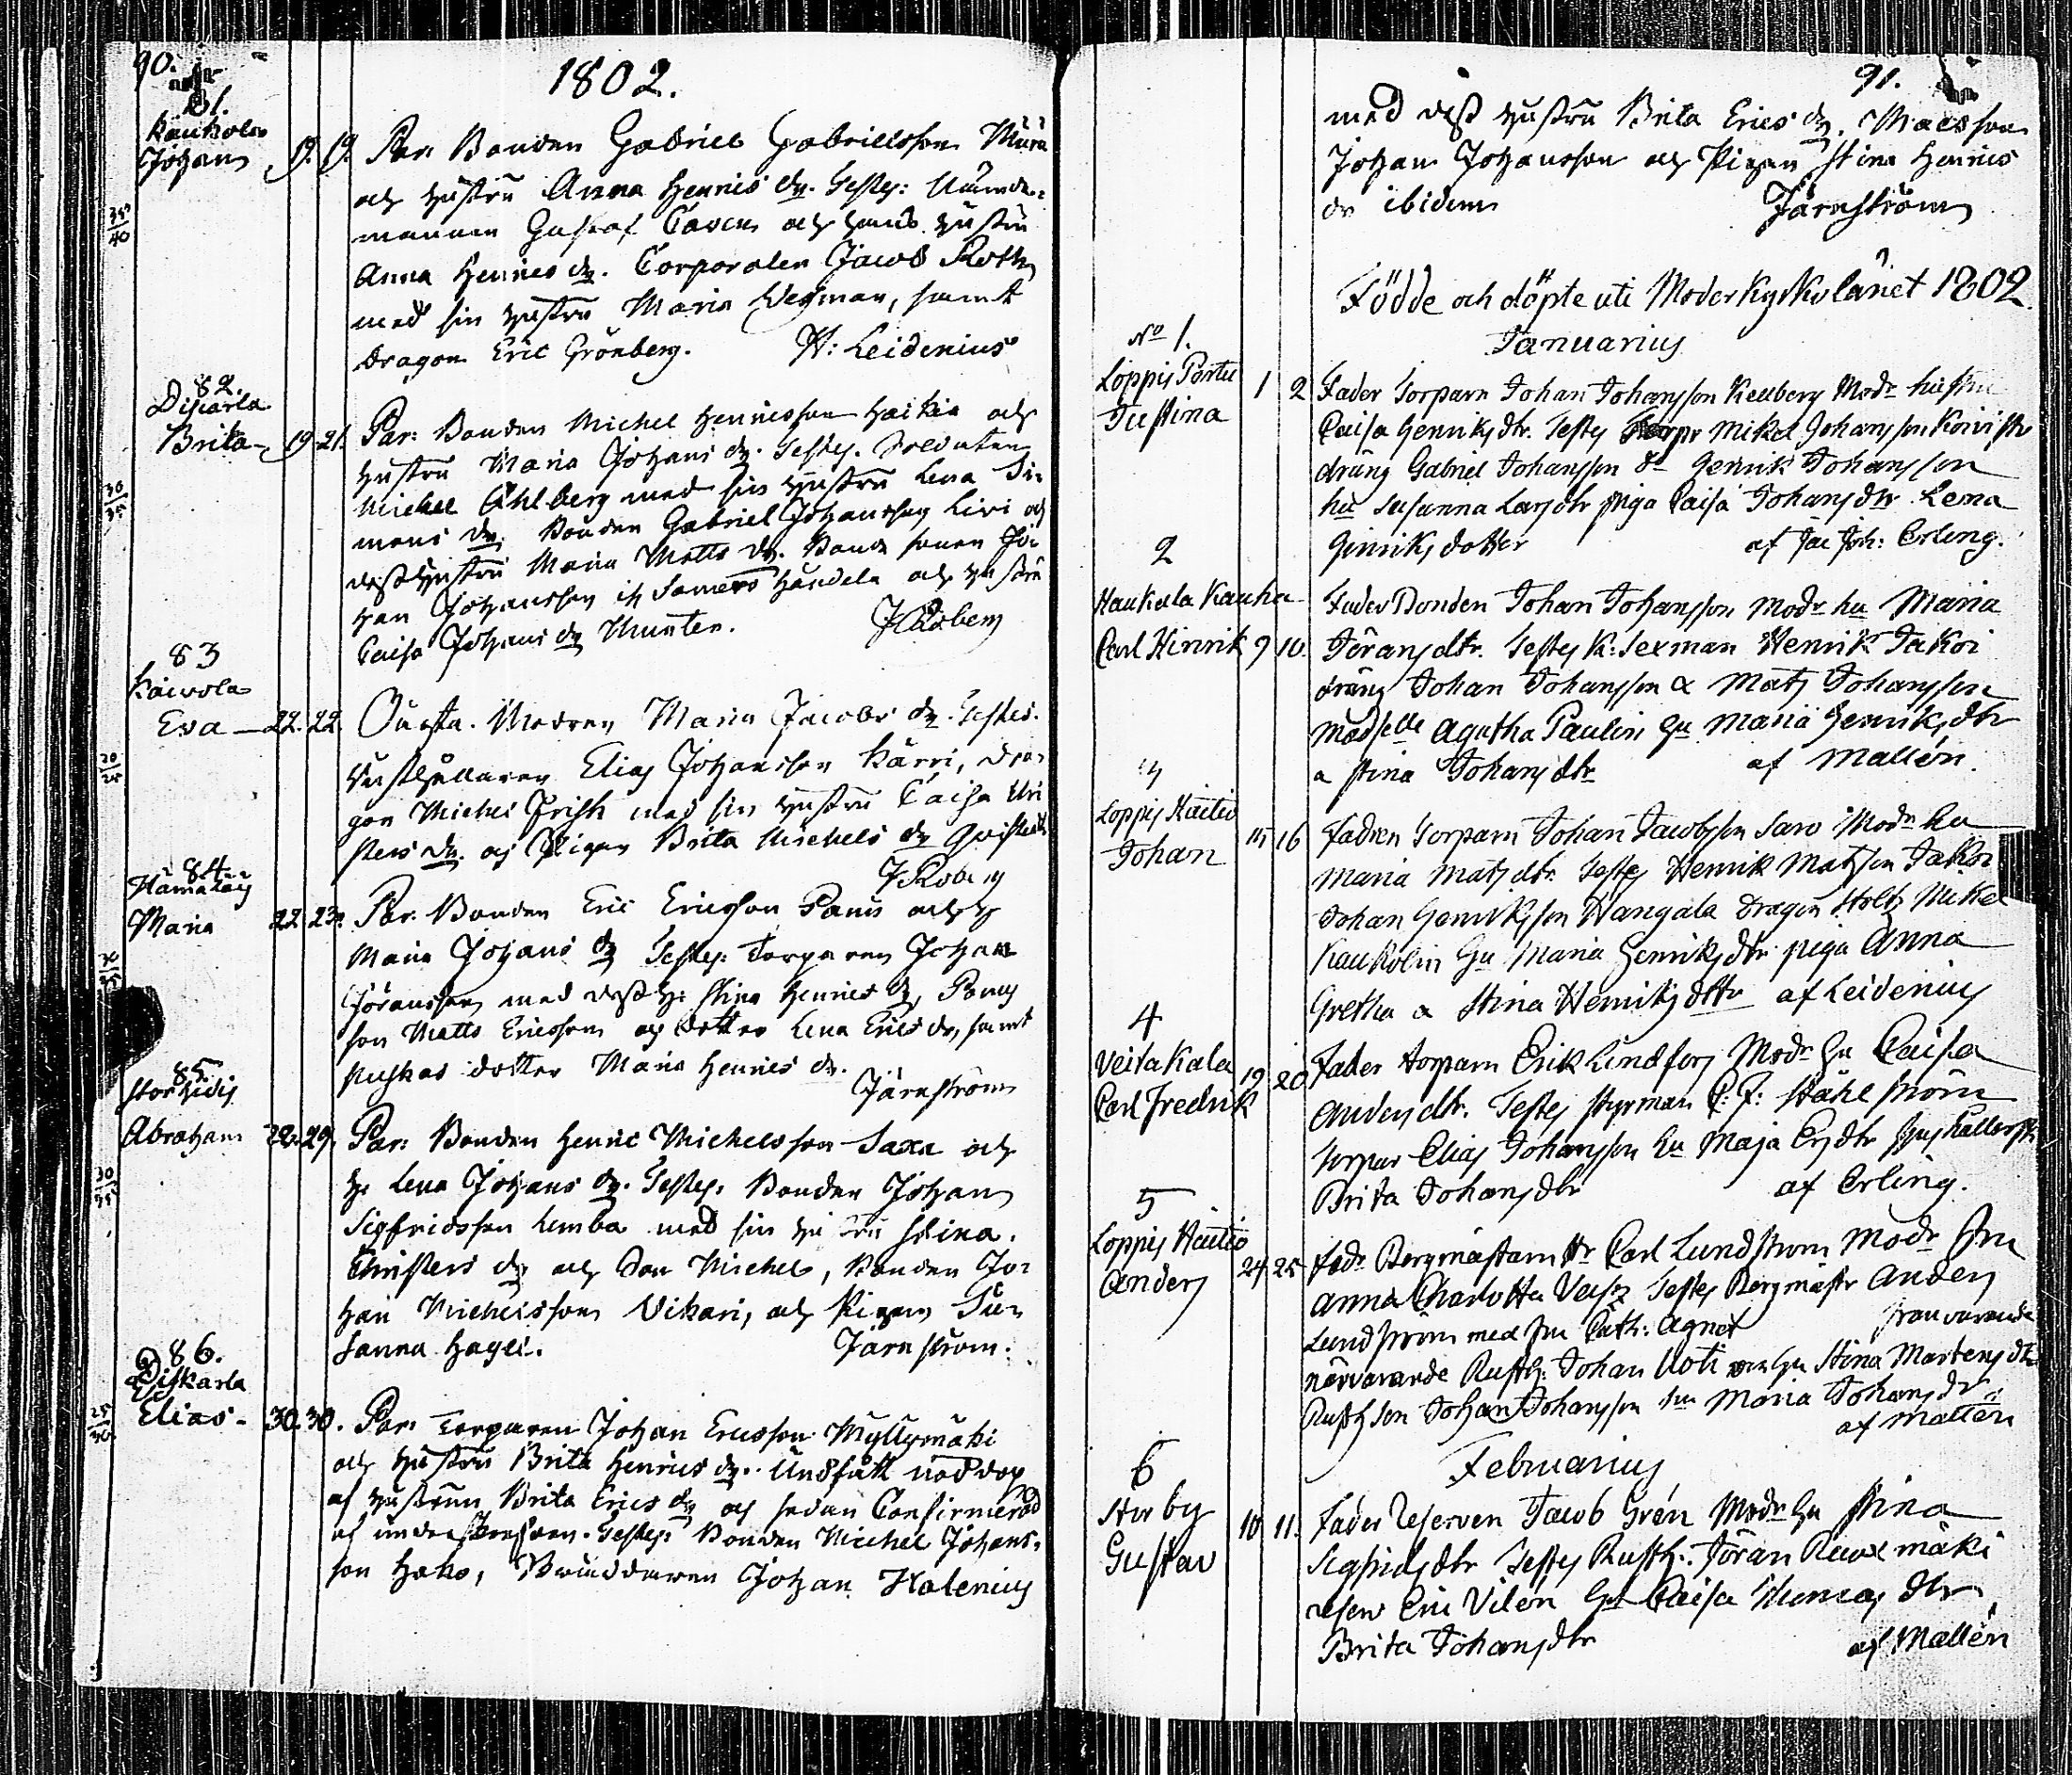 90.
1802.
81.
Kaukola
Johan 19. 19. Par: Bonden Gabriel Gabrielsson
och hustru Anna Henrics dr. Testes: Nämde-
mannen Gustaf Caven och hans hustru
Anna Henrics dr. Corporalen Jacob Roth
med sin hustru Maria Wegman, samt
Dragon Eric Grönberg. H: Leidenius
35/40
82.
Brita 19 21. Par: Bonden Michel Henricsson Haikia och
hustru Maria Johans dr. Testes. Soldaten
Michel Ahlberg med sin hustru Lena Si-
mons dr. Bonden Gabriel Johansson Livi och
dess hustru Maria Matts dr. Bonde sonen Jo-
han Johansson ifr Somero Händela och hustru
Caisa Johans dr Munter.
30/35
83
Eva 22. 22. Oäkta. Modren Maria Jacobs dr. Testes.
Rusthållaren Elias Johansson Kärri, Dra-
gon Michel Frisk med sin hustru Caisa Chri
sters dr. och Pigan Brita Michels dr
84
Maria 22 23. Par: Bonden Eric Ericsson Panu och h
Maria Johans dr Testes: Torparen Johan
Göransson med dess h: Stina Henrics dr,
son Matts Ericsson och dotter Lena Erics dr, samt
dotter Maria Henrics dr.
Järnström
85.
Storhidis
Abraham 22. 29. Par: Bonden Henric Michelsson Saxa och
h: Lena Johans dr. Testes: Bonden Johan
Sigfridsson Lemba med sin hustru Stina
Christers dr och Son Michel, Bonden Jo-
han Michelsson Vikari, och Pigan Su-
sanna Hageli. Järnström.
30/35
86.
Diskarla
Elias 30. 30. Par: Torparen Johan Ericsson Myllymäki
och hustru Brita Henrics dr. Undfått nöddop
af hustrun Brita Erics dr och sedan Confirmerad
af undertecknad. Testes: Bonden Michel Johans-
son Hako, Johan Halenius
91.
med dess hustru Brita Erics dr. Mäesson
Johan Johansson och Pigan Stina Henrics
dr ibidem Järnström
Födde och döpte uti Moderkyrkolänet 1802
Januarius
No 1.
Loppis Portu
Justina 1 2 Fader Torparn Johan Johansson Keuberg Modr hustru
Caisa Henriksdtr. Testes Torpr Mikel Johansson Koivisto
dräng Gabriel Johansson do Henrik Johansson
hu Susanna Larsdtr piga Caisa Johansdtr Lena
Henriksdotter af Joh: Erling.
2
Haukala Kauha
Carl Hinrik 9 10. Fader Bonden Johan Johansson Modr hu Maria
Göransdtr. Testes K: Sexman Henrik Jakoi
dräng Johan Johansson & Mats Johansson
Madselle Agatha Paulin hu Maria Henriksdtr
& Stina Johansdtr af Mallén.
3
Loppis Haitio
Johan 15 16 Fadren Torparn Johan Jacobsson Saro Modr hu
Maria Matsdtr. Testes Henrik Matsson Jakoi
Johan Henriksson Wangala Dragon Holtz Mickel
Kaukolin hu Maria Henriksdtr piga Anna
Gretha & Stina Henriksdttr af Leidenius
4
Veitakala
Carl Fredrik 19 20 Fader torparn Erik Lindfors Modr hu Caisa
Andersdtr. Testes Styrman C: F: Ståhlström
torpar Elias Johansson hu Maja Ersdtr
Brita Johansdtr af Erling.
5
Loppis Haitio
Anders 24 25 Fadr Borgmästarn Hr Carl Lundström Modr fru
Anna Charlotta Testes Borgmästr Anders
Lundström med fru Cath: Agnet frånvarande
närvarande Rusth: Johan Uoti hu Stina Mårtensdtr
Rusth son Johan Johansson hu Maria Johansdr
af Mallén
Februarius
6
Storby
Gustav 10 11. Fader Reserven Jacob Grén Modr hu Stina
Sigfridsdtr Testes Rusth: Jöran Ruoxmäki
reserv Eric Vilén hu Caisa Thomasdtr
Brita Johansdtr af Mallén